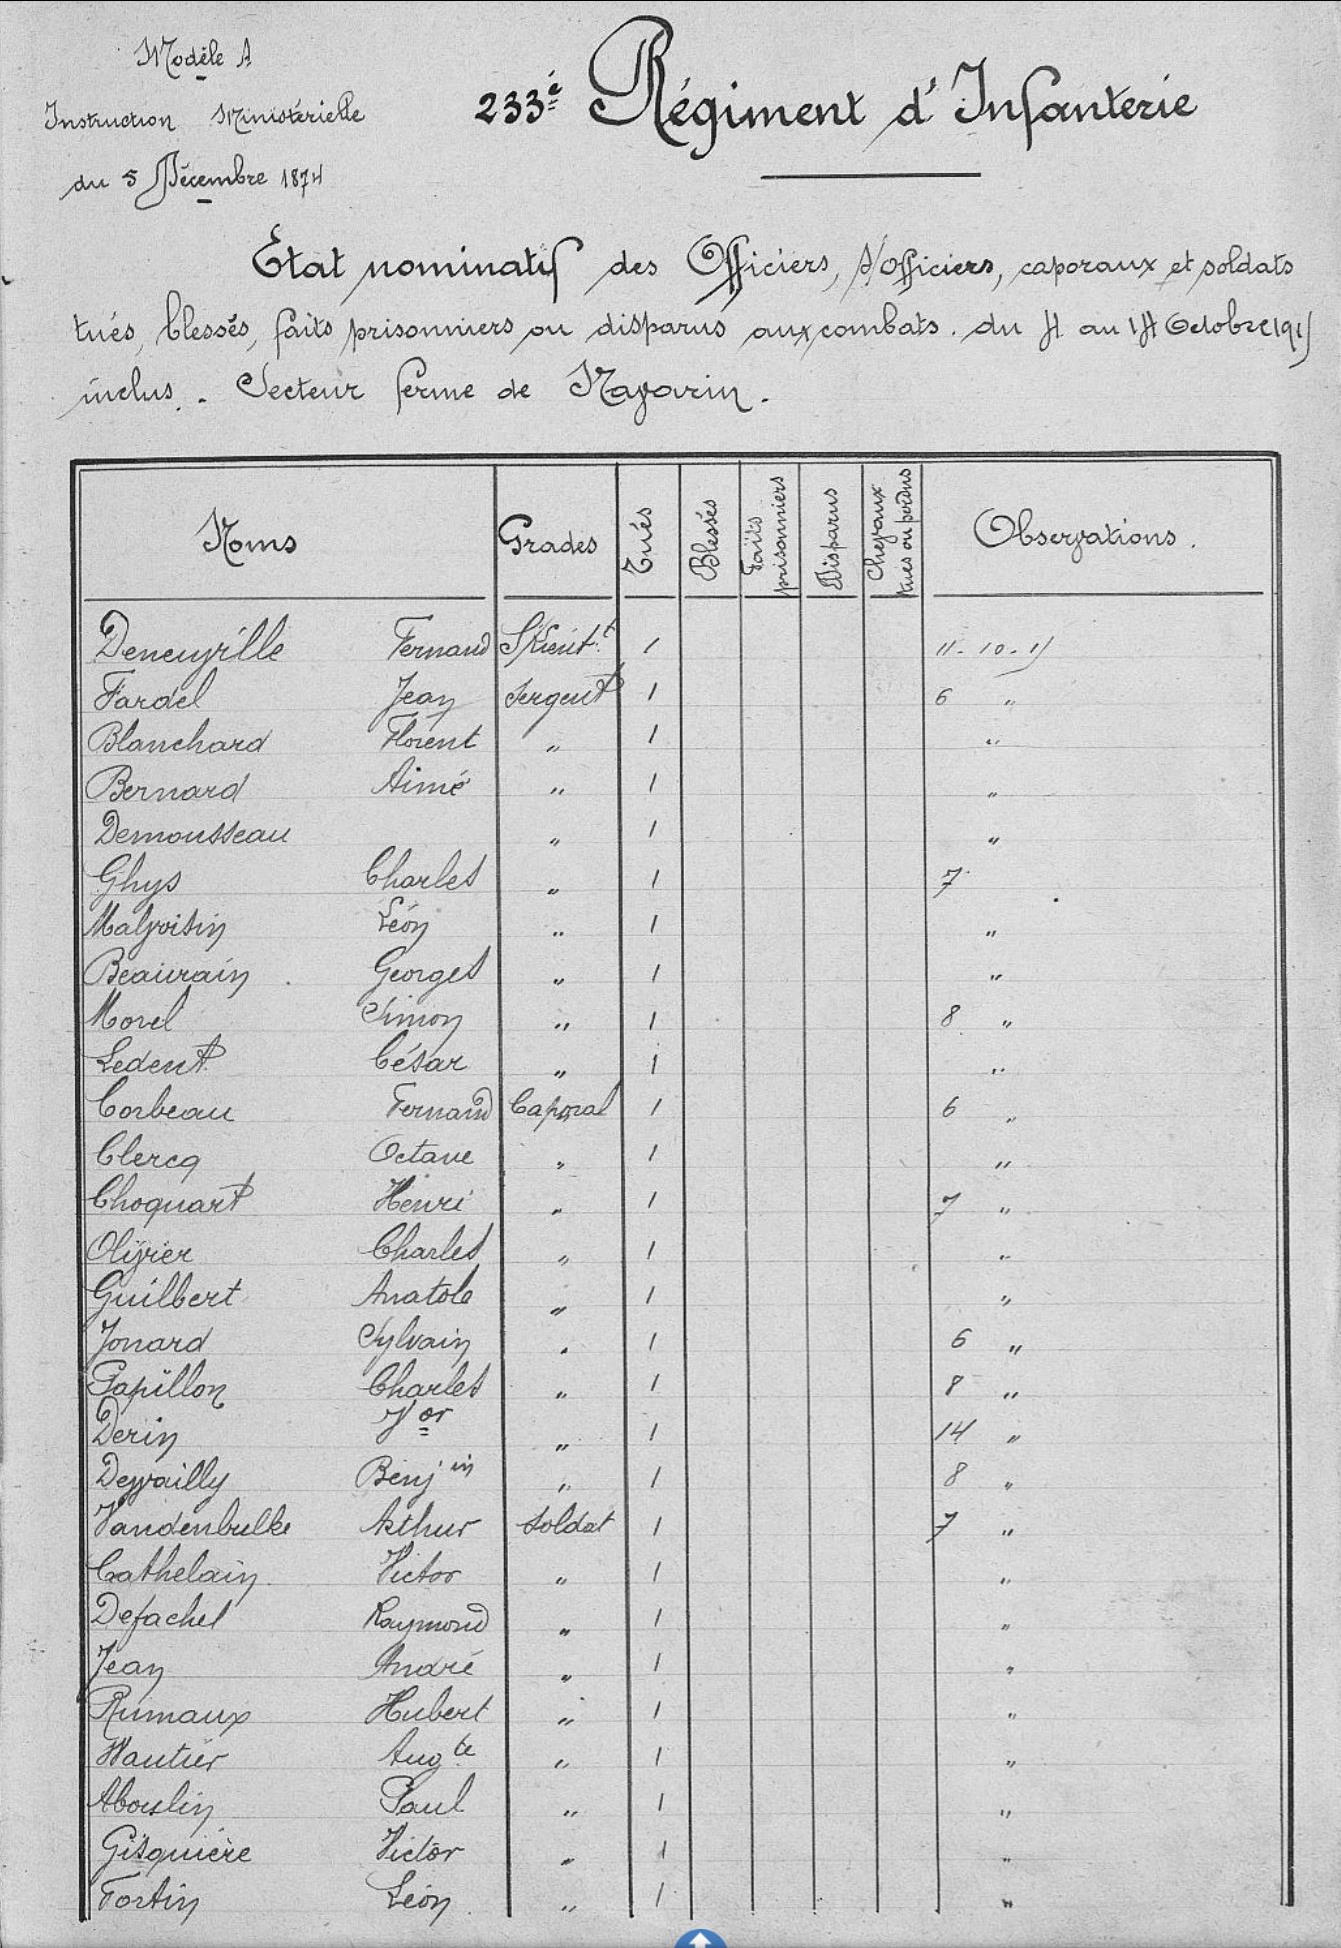 Modèle A
Instruction Ministérielle
du 5 Décembre 1874
233è Régiment d'Infanterie
Etat nominatif des Officiers, S/Officiers, caporaux et soldats
tués, blessés, faits prisonniers ou disparus aux combats. du 4 au 14 Octobre 1915
inclus. - Secteur ferme de Navarin.
Noms Grades Tués Blessés Faits prisonniers Disparus Chevaux tués ou perdus Observations.
Deneuville Fernand S/Lieut.t 1 11-10-15
Fardel Jean Sergent 1 6 "
Blanchard Florent " 1 "
Bernard Aimé " 1 "
Demousseau " 1 "
Ghys Charles " 1 7
Malvoisin Léon " 1 "
Beauvain Georges " 1 "
Morel Simon " 1 8 "
Ledent César " 1 "
Corbeau Fernand Caporal 1 6 "
Clercq Octave " 1 "
Choquart Henri " 1 7 "
Olivier Charles " 1 "
Guilbert Anatole " 1 "
Jonard Sylvain " 1 6 "
Papillon Charles " 1 8 "
Derin V'or " 1 14 "
Devailly Benj'in " 1 8 "
Vandenbulke Arthur Soldat 1 7 "
Cathelain Victor " 1 "
Defachel Raymond " 1 "
Jean André " 1 "
Rumaux Hubert " 1 "
Wautier Aug te " 1 "
Paul " 1 "
Gisquière Victor " 1 "
Fortin Léon " 1 "